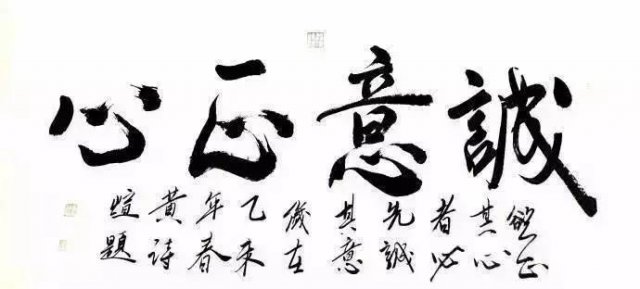 誠意正心
欲正
其心
者必
先誠
其意
歲在
乙未
年春
黃詩
煊題